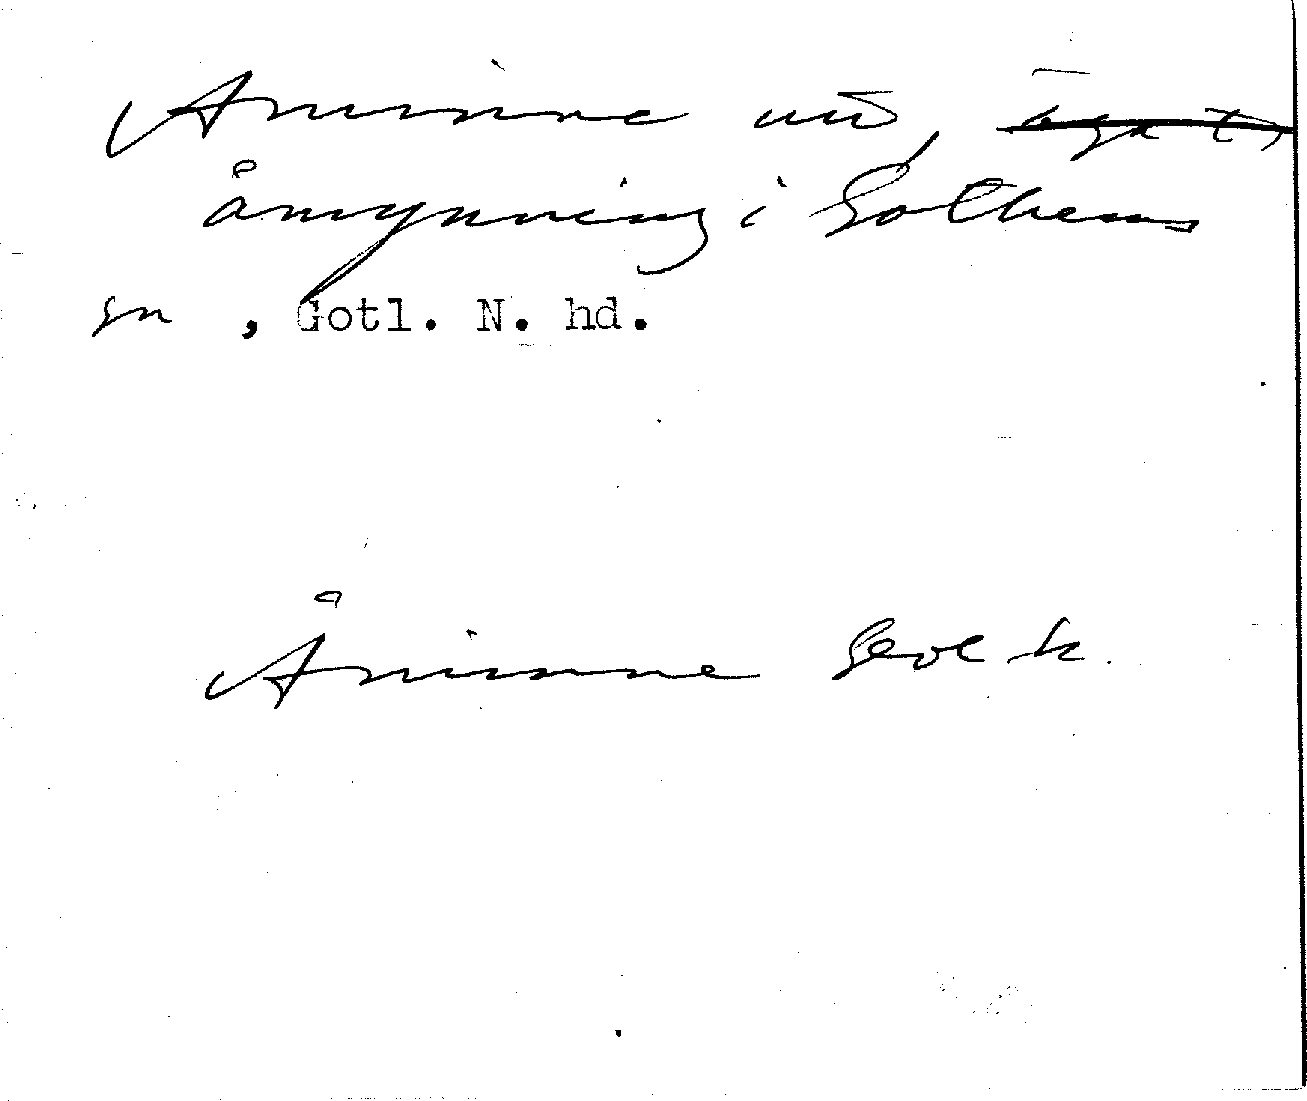 Åminne
åmynning i Gothems
sn, Gotl. N. hd.
Åminne Geol k.